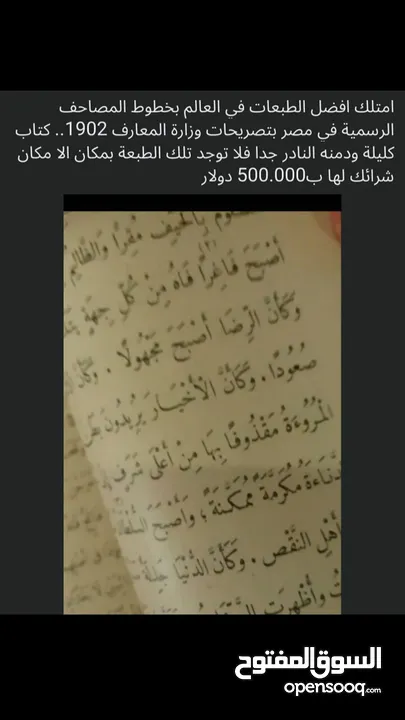 امتلك افضل الطبعات في العالم بخطوط المصاحف
الرسمية في مصر بتصريحات وزارة المعارف 1902.. كتاب
كليلة ودمنه النادر جدا فلا توجد تلك الطبعة بمكان الا مكان
شرائك لها ب500.000 دولار
بِالْحَيْفِ مُقِرًّا وَالظَّالِمُ
أَصْبَحَ فَاغِرًا فَاهُ مِنْ كُلِّ جِهَةٍ
وَكَأَنَّ الرِّضَا أَصْبَحَ مَجْهُولًا . وَكَأَنَّ
صُعُودًا . وَكَأَنَّ الْأَخْيَارَ يُرِيدُونَ بَطْنَ
الْمُرُوءَةُ مَقْذُوفًا بِهَا مِنْ أَعْلَى شَرَفٍ
الدَّنَاءَةُ مُكَرَّمَةً مُمَكَّنَةً ؛ وَأَصْبَحَ السُّلْطَانُ
أَهْلِ النَّقْصِ . وَكَأَنَّ الدُّنْيَا جَذِلَةٌ
وَأَظْهَرَتِ
السوق المفتوح
opensooq.com